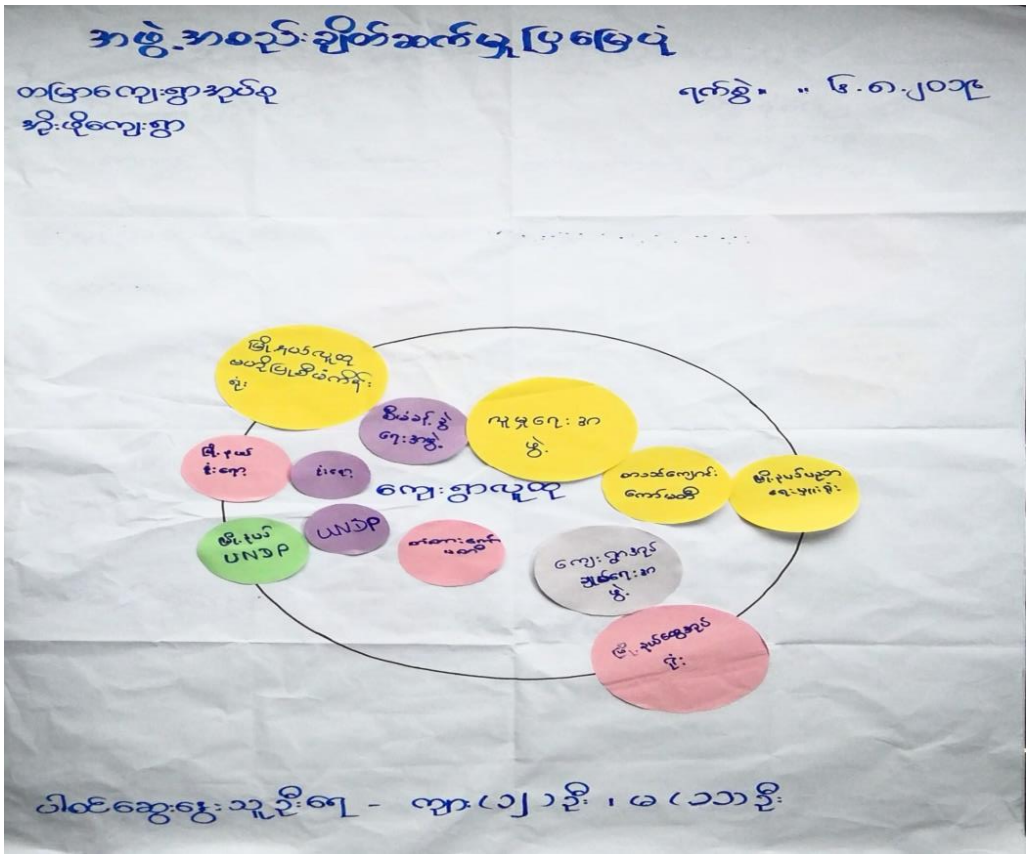 အဖွဲ့အစည်းချိတ်ဆက်မှုပြမြေပုံ
တမြာကျေးရွာအုပ်စု
အိုးဖိုကျေးရွာ
ရက်စွဲ။ ။ ၆.၈.၂၀၁၉
မြို့နယ်လူထု
ဗဟိုပြုစီမံကိန်း
ရုံး
စီမံခန့်ခွဲ
ရေးအဖွဲ့
လူမှုရေး အဖ
ဖွဲ့
မြို့နယ်
စာသင်ကျောင်း
ကော်မတီ
မြို့နယ်ပညာ
ရေးမှူးရုံး
ကျေးရွာလူထု
မြို့နယ်
UNDP
UNDP
ကျေးရွာအုပ်
ချုပ်ရေး အ
ဖွဲ့
မြို့နယ်ထွေအုပ်
ရုံး
ပါဝင်ဆွေးနွေးသူဦးရေ - ကျား (၁၂) ဦး ၊ မ (၁၁) ဦး